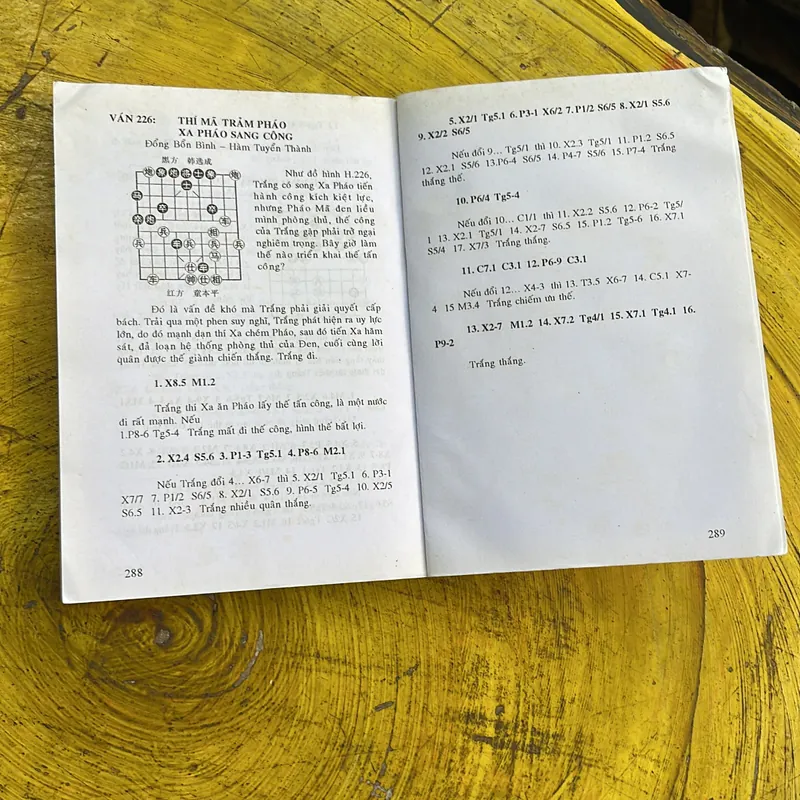 VÁN 226: THÍ MÃ TRẢM PHÁO
XA PHÁO SANG CÔNG
Đổng Bổn Bình – Hàm Tuyển Thành
黑方 韩选成
Như đồ hình H.226,
Trắng có song Xa Pháo tiến
hành công kích kiệt lực,
nhưng Pháo Mã đen liều
mình phòng thủ, thế công
của Trắng gặp phải trở ngại
nghiêm trọng. Bây giờ làm
thế nào triển khai thế tấn
công?
红方 童本平
Đó là vấn đề khó mà Trắng phải giải quyết cấp
bách. Trải qua một phen suy nghĩ, Trắng phát hiện ra uy lực
lớn, do đó mạnh dạn thí Xa chém Pháo, sau đó tiến Xa hãm
sát, đả loạn hệ thống phòng thủ của Đen, cuối cùng lời
quân được thế giành chiến thắng. Trắng đi.
1. X8.5 M1.2
Trắng thí Xa ăn Pháo lấy thế tấn công, là một nước
đi rất mạnh. Nếu
1.P8-6 Tg5-4 Trắng mất đi thế công, hình thế bất lợi.
2. X2.4 S5.6 3. P1-3 Tg5.1 4. P8-6 M2.1
Nếu Trắng đổi 4... X6-7 thì 5. X2/1 Tg5.1 6. P3-1
X7/7 7. P1/2 S6/5 8. X2/1 S5.6 9. P6-5 Tg5-4 10. X2/5
S6.5 11. X2-3 Trắng nhiều quân thắng.
288
5. X2/1 Tg5.1 6. P3-1 X6/2 7. P1/2 S6/5 8. X2/1 S5.6
9. X2/2 S6/5
Nếu đổi 9... Tg5/1 thì 10. X2.3 Tg5/1 11. P1.2 S6.5
12. X2.1 S5/6 13.P6-4 S6/5 14. P4-7 S5/6 15. P7-4 Trắng
thắng thế.
10. P6/4 Tg5-4
Nếu đổi 10... C1/1 thì 11. X2.2 S5.6 12. P6-2 Tg5/
1 13. X2.1 Tg5/1 14. X2-7 S6.5 15. P1.2 Tg5-6 16. X7.1
S5/4 17. X7/3 Trắng thắng.
11. C7.1 C3.1 12. P6-9 C3.1
Nếu đổi 12... X4-3 thì 13. T3.5 X6-7 14. C5.1 X7-
4 15 M3.4 Trắng chiếm ưu thế.
13. X2-7 M1.2 14. X7.2 Tg4/1 15. X7.1 Tg4.1 16.
P9-2
Trắng thắng.
289